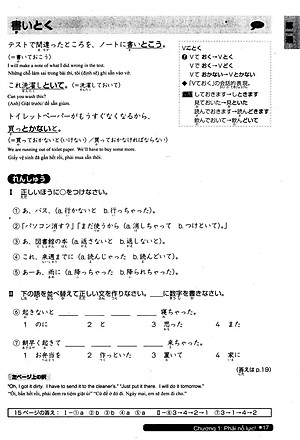 書いとく
テストで間違ったところを、ノートに書いとこう。
(＝書いておこう)
I will make a note of what I did wrong in the test.
Những chỗ làm sai trong bài thi, tôi (định sẽ) ghi sẵn vào vở.
これ洗濯しといて。(＝洗濯しておいて)
Can you wash this?
(Anh) Giặt trước/ để sẵn giùm.
トイレットペーパーがもうすぐなくなるから、
買っとかないと。
(＝買っておかないと(いけない) ／買っておかなければならない)
We are running out of toilet paper. We'll have to buy some more.
Giấy vệ sinh đã gần hết rồi, phải mua sẵn thôi.
Vとく
Vて おく→Vとく
Vで おく→Vどく
Vて おかない→Vとかない
「Vておく」の会話的表現。
しておきます→しときます
見ておいた→見といた
読んでおきます→読んどきます
飲んでおいて→飲んどいて
れんしゅう
I 正しいほうに○をつけなさい。
① あ、バス、(a. 行かないと b. 行っちゃった)。
② 「パソコン消す?」「まだ使うから (a. 消しちゃって b. つけといて)。」
③ あ、図書館の本 (a. 返さないと b. 返しないと)。
④ これ、来週までに (a. 読んじゃった b. 読んどいて)。
⑤ あーあ、雨に (a. 降っちゃった b. 降られちゃった)。
II 下の語を並べ替えて正しい文を作りなさい。 ___に数字を書きなさい。
⑥ 起きないと ___ ___ ___ ___ 寝ちゃった。
1 のに 2 と 3 思った 4 また
⑦ 朝早く起きて ___ ___ ___ ___ 来ちゃった。
1 お弁当を 2 作っといた 3 置いて 4 家に
(答えは p.19)
左ページ上の訳
"Oh, I got it dirty. I have to send it to the cleaner's." "Just put it there. I will do it tomorrow."
"Ôi, bẩn hết rồi, phải đem ra tiệm giặt ủi" "Cứ để ở đó đi. Ngày mai, em sẽ đem đi cho."
15ページの答え： I－①a ②b ③b ④a ⑤a II－⑥3→4→2→1 ⑦3→1→4→2
Chương 1: Phải nỗ lực! 17